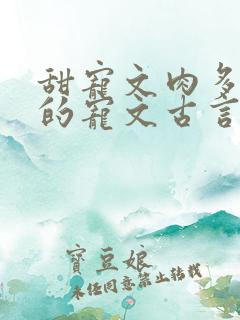 甜寵文肉多
的寵文古言
寶豆娘
未经同意禁止转载